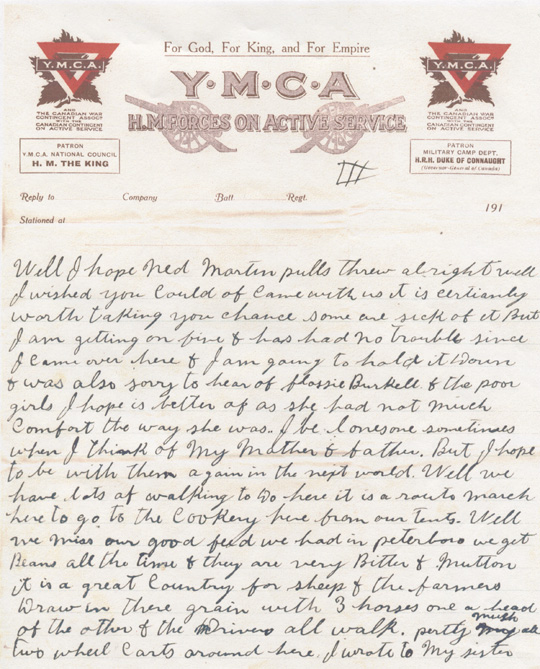 For God, For King, and For Empire
Y·M·C·A
H.M FORCES ON ACTIVE SERVICE
Y.M.C.A.
AND
THE CANADIAN WAR
CONTINGENT ASSOC?
WITH THE
CANADIAN CONTINGENT
ON ACTIVE SERVICE
PATRON
Y.M.C.A. NATIONAL COUNCIL
H. M. THE KING
Y.M.C.A.
AND
THE CANADIAN WAR
CONTINGENT ASSOC?
WITH THE
CANADIAN CONTINGENT
ON ACTIVE SERVICE
PATRON
MILITARY CAMP DEPT.
H.R.H. DUKE OF CONNAUGHT
(Governor-General of Canada)
III
Reply to Company Batt. Regt. 191
Stationed at
Well I hope Ned Martin pulls threw alright well
I wished you Could of Came with us it is certianly
worth taking you chance some are sick of it But
I am getting on fine & has had no trouble since
I Came over here & I am going to hold it Down
& was also sorry to hear of flossie Burkell & the poor
girls I hope is better of as she had not much
Comfort the way she was. I be lonesome sometimes
when I think of My Mother & father. But I hope
to be with them again in the next world. Well we
have lots of walking to Do here it is a route march
here to go to the Cookery here from our tents. Well
we miss our good feed we had in peterboro we get
Beans all the time & they are very Bitter & Mutton
it is a great Country for sheep & the farmers
Draw in there grain with 3 horses one a head
of the other & the Drivers all walk. perty much all
two wheel Carts around here. I wrote to My sister